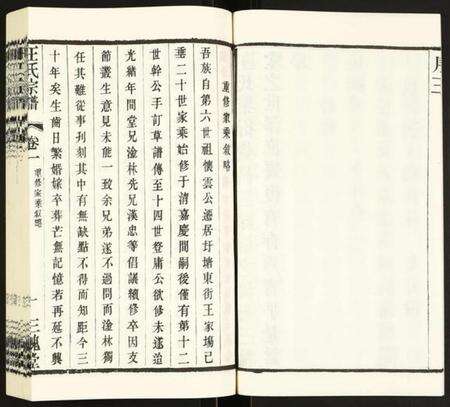 重修家乘叙略
吾族自第六世祖懷雲公遷居圩塘東街王家場已
垂二十世家乘始修于清嘉慶間嗣後僅有第十二
世幹公手訂草譜傳至十四世登庸公欲修未遂迨
光緒年間堂兄淦林先兄漢忠等倡議續修卒因支
節叢生意見未能一致余兄弟遂不過問而淦林獨
任其難從事刋刻其中有無缺點不得而知距今三
十年矣生齒日繁婚嫁卒葬茫無記憶若再延不興
王氏宗譜
卷一
重修家乘叙略
一
三槐堂